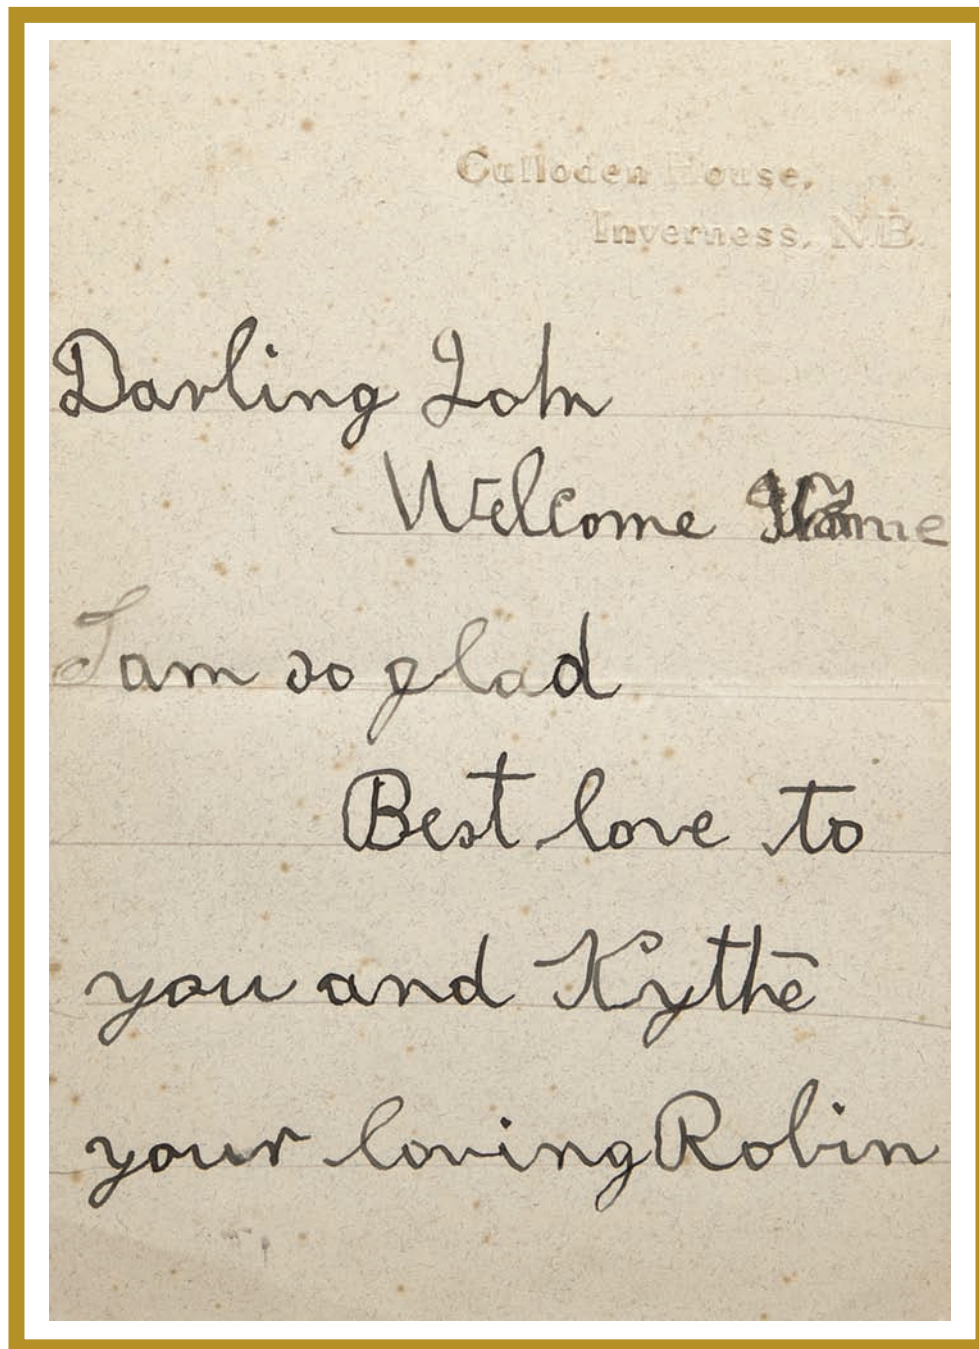 Culloden House,
Inverness, N.B.
Darling John
Welcome Home
I am so glad
Best love to
you and Kythē
your loving Robin